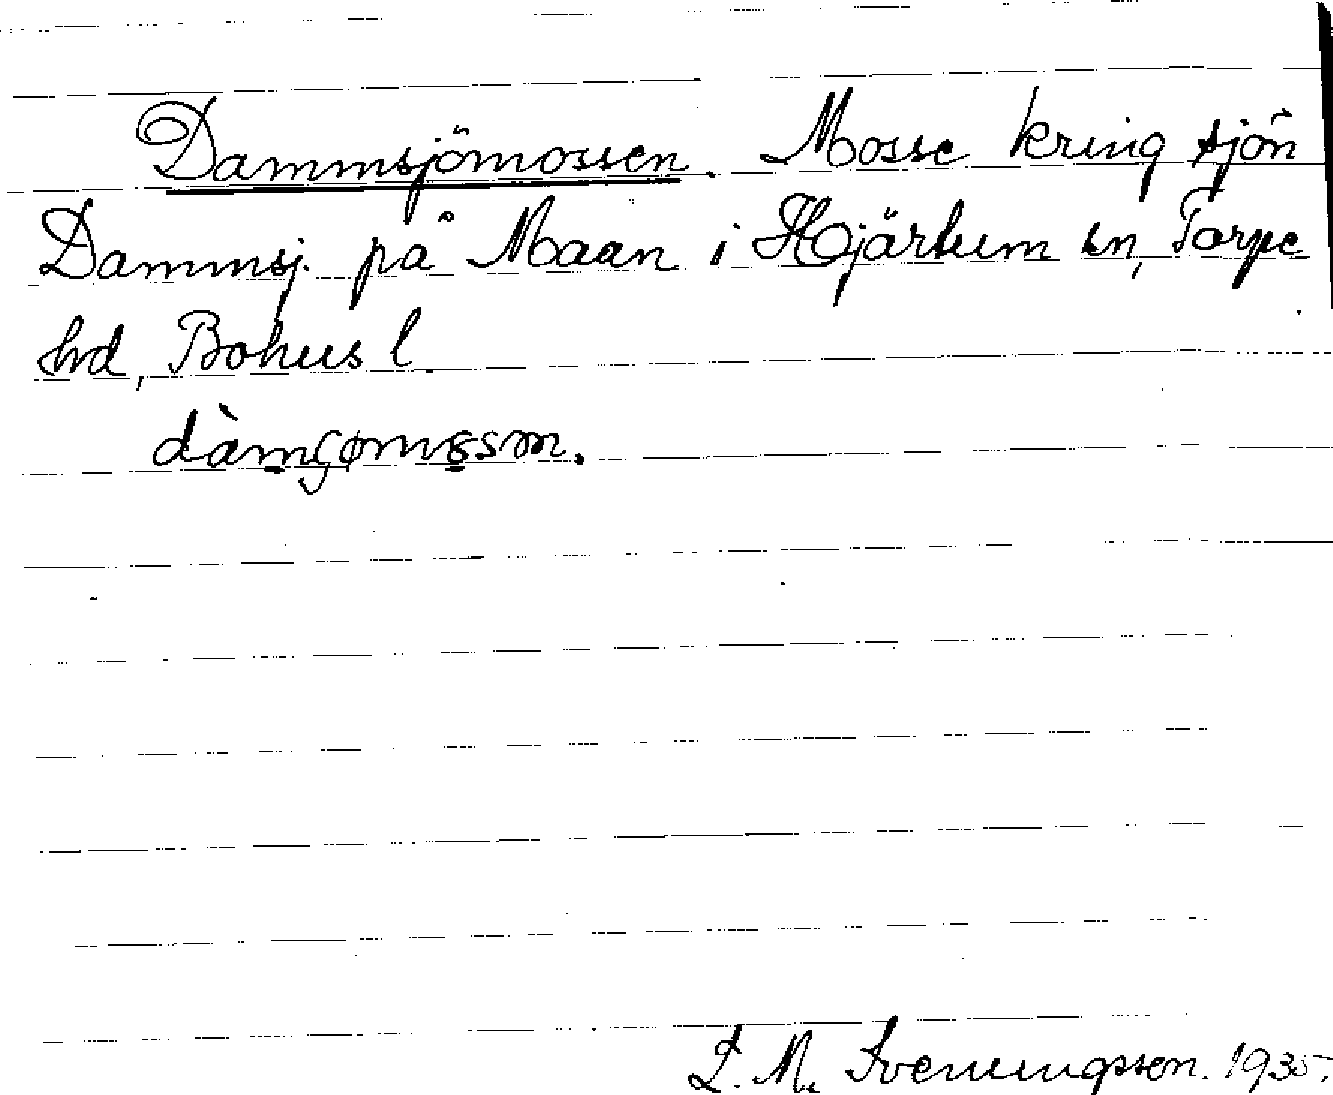 Dammsjömossen. Mosse kring sjön
Dammsj. på Maan i Hjärtum sn, Torpe
hd, Bohus l.
L. M. Svenungsson. 1935.